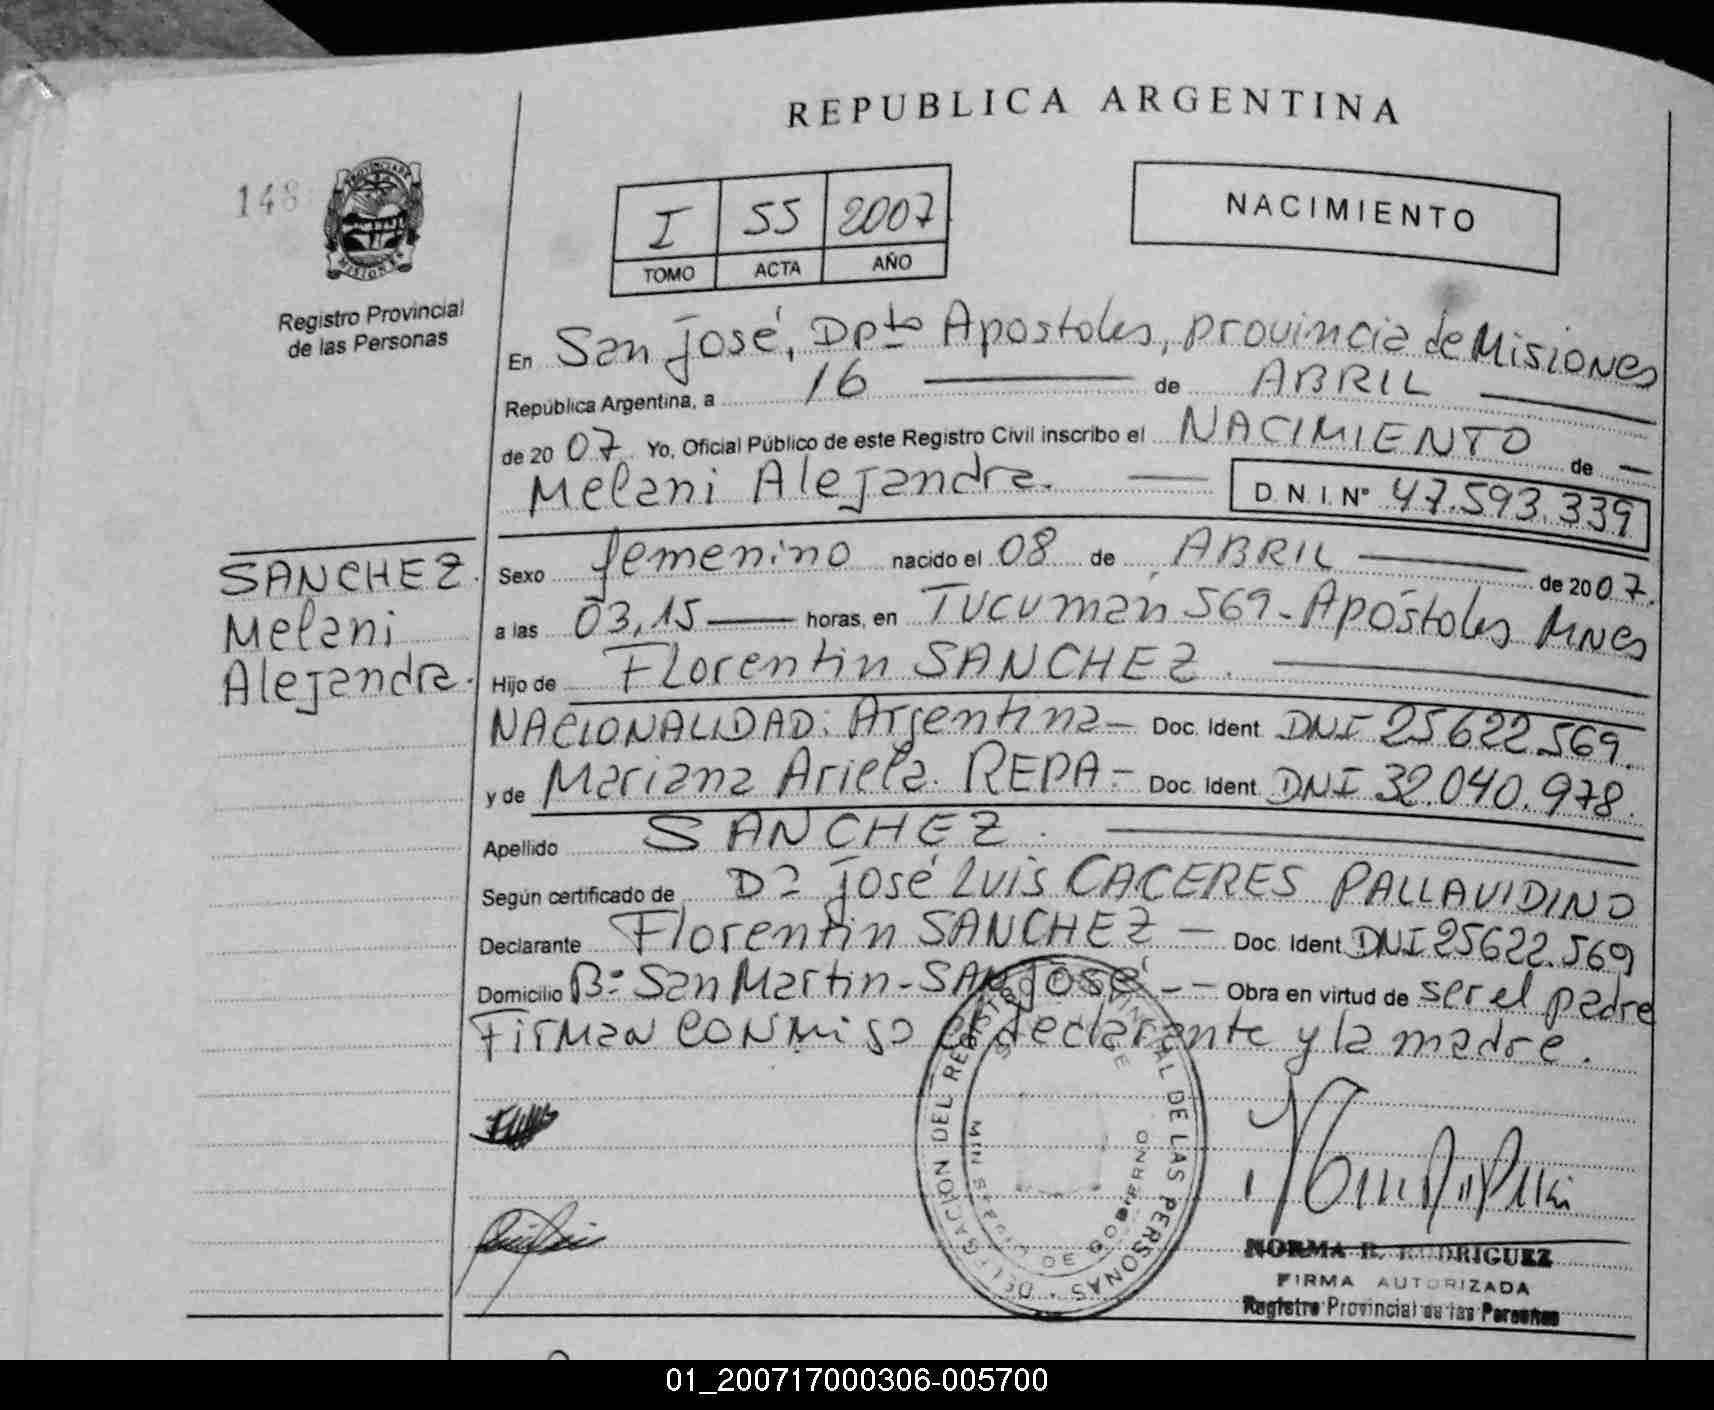 REPUBLICA ARGENTINA
148
PROVINCIA DE
MISIONES
Registro Provincial
de las Personas
I 55 2007
TOMO ACTA AÑO
NACIMIENTO
En San José, Dpto Apostoles, provincia de Misiones
República Argentina, a 16 de ABRIL
de 2007. Yo, Oficial Público de este Registro Civil inscribo el NACIMIENTO de
Melani Alejandra. D.N.I.N° 47.593.339
SANCHEZ.
Melani
Alejandra.
Sexo femenino nacido el 08 de ABRIL de 2007.
a las 03,15 horas, en Tucumán 569 - Apóstoles Mnes
Hijo de Florentin SANCHEZ.
NACIONALIDAD: Argentina - Doc. Ident. DNI 25622.569.
y de Mariana Ariela. REPA - Doc. Ident. DNI 32.040.978.
Apellido SANCHEZ.
Según certificado de José Luis CACERES PALLAVIDINO
Declarante Florentin SANCHEZ - Doc. Ident. DNI 25622.569
Domicilio B: San Martin - SAN José - - Obra en virtud de ser el padre
Firman conmigo el declarante y la madre.
DELEGACION DEL REGISTRO PROVINCIAL DE LAS PERSONAS
DE GOBIERNO
NORMA B. RODRIGUEZ
FIRMA AUTORIZADA
Registro Provincial de las Personas
01_200717000306-005700